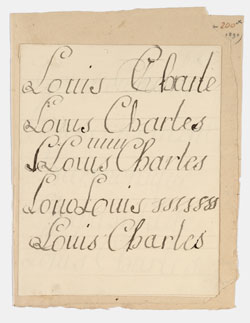 Louis Charle
Louis Charles
Louis Charles
LouoLouis sssssss
Louis Charles